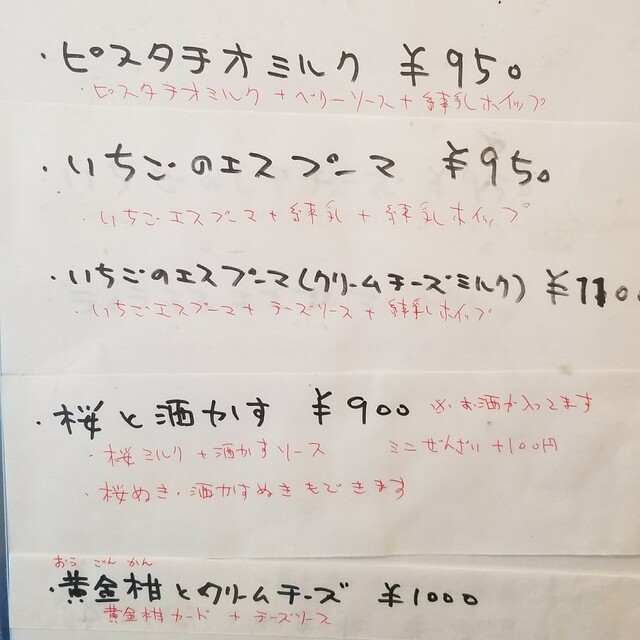 ・ピスタチオミルク ￥950
・ピスタチオミルク＋ベリーソース＋練乳ホイップ
・いちごのエスプーマ ￥950
・いちごエスプーマ＋練乳＋練乳ホイップ
・いちごのエスプーマ(クリームチーズミルク) ￥1100
・いちごエスプーマ＋チーズソース＋練乳ホイップ
・桜と酒かす ￥900 ※お酒が入ってます
・桜ミルク＋酒かすソース ミニぜんざい＋100円
・桜ぬき・酒かすぬきもできます
おう ごん かん
・黄金柑とクリームチーズ ￥1000
黄金柑カード ＋ チーズソース